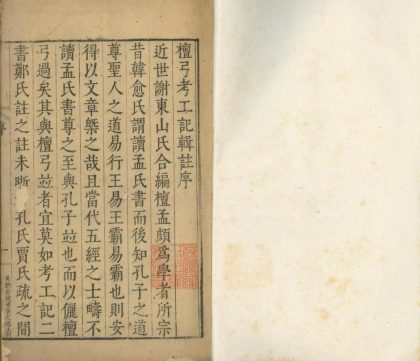 檀弓考工記輯註序
近世謝東山氏合編檀孟頗為學者所宗
昔韓愈氏謂讀孟氏書而後知孔子之道
尊聖人之道易行王易王霸易霸也則安
得以文章槩之哉且當代五經之士疇不
讀孟氏書尊之至與孔子並也而以儷檀
弓過矣其與檀弓並者宜莫如考工記二
書鄭氏註之註未晰 孔氏賈氏疏之間
序
一